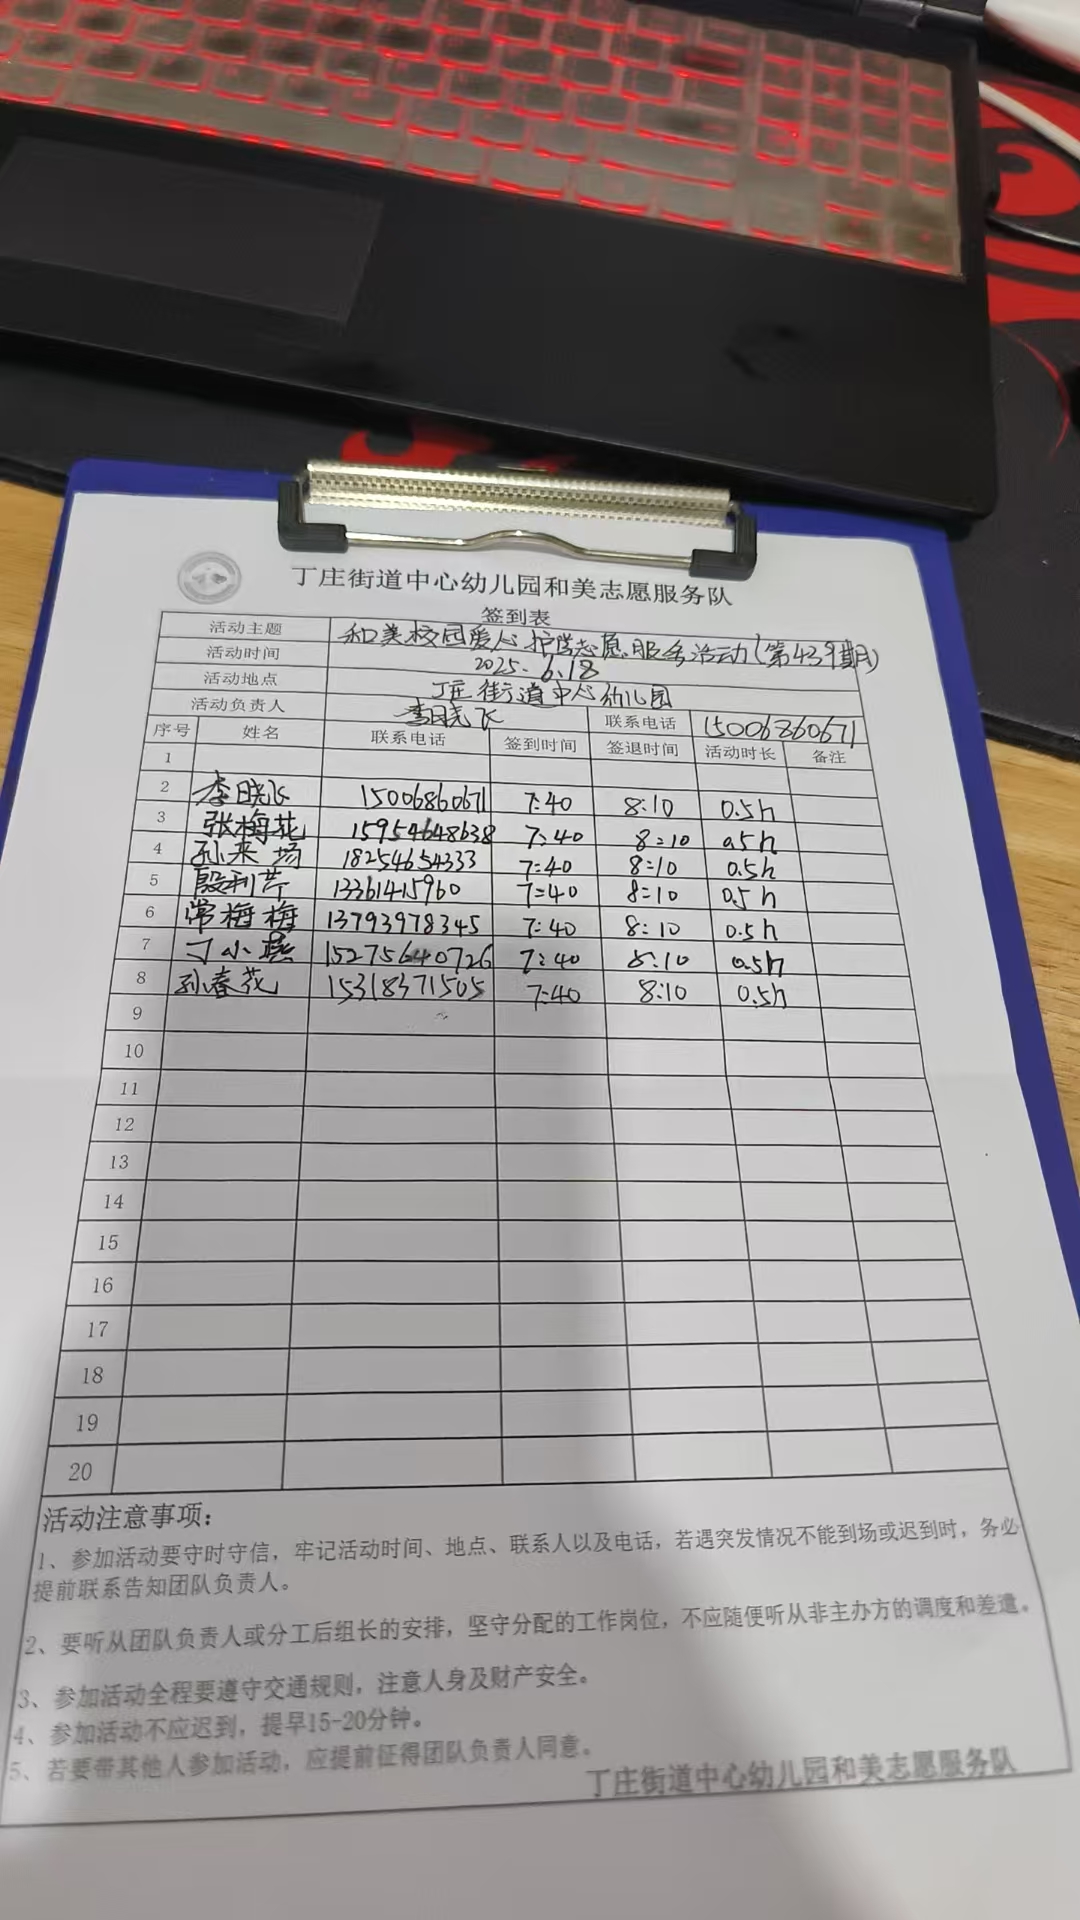 丁庄街道中心幼儿园和美志愿服务队
签到表
活动主题 和美校园爱心护学志愿服务活动(第439期)
活动时间 2025.6.18
活动地点 丁庄街道中心幼儿园
活动负责人 李晓飞 联系电话 15006860671
序号 姓名 联系电话 签到时间 签退时间 活动时长 备注
1
2 李晓飞 15006860671 7:40 8:10 0.5h
3 张梅花 15954648638 7:40 8:10 0.5h
4 孙来场 18254654333 7:40 8:10 0.5h
5 殷利芹 13361415960 7:40 8:10 0.5h
6 常梅梅 13793978345 7:40 8:10 0.5h
7 丁小燕 15275640726 7:40 8:10 0.5h
8 孙春花 15318371505 7:40 8:10 0.5h
9
10
11
12
13
14
15
16
17
18
19
20
活动注意事项：
1、参加活动要守时守信，牢记活动时间、地点、联系人以及电话，若遇突发情况不能到场或迟到时，务必
提前联系告知团队负责人。
2、要听从团队负责人或分工后组长的安排，坚守分配的工作岗位，不应随便听从非主办方的调度和差遣。
3、参加活动全程要遵守交通规则，注意人身及财产安全。
4、参加活动不应迟到，提早15-20分钟。
5、若要带其他人参加活动，应提前征得团队负责人同意。
丁庄街道中心幼儿园和美志愿服务队